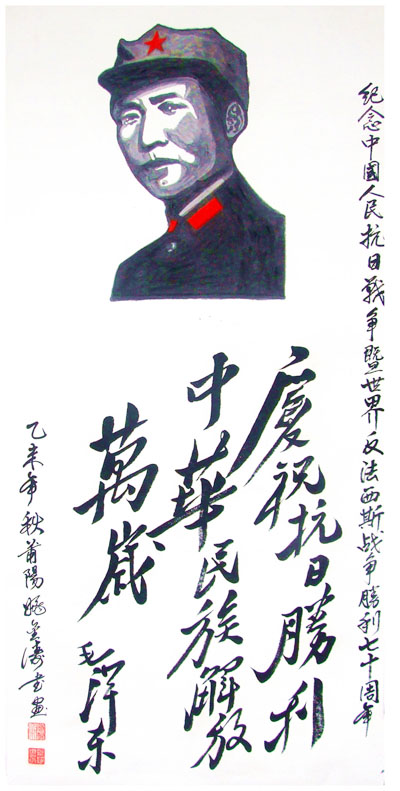 纪念中國人民抗日戰争暨世界反法西斯战争勝利七十周年
慶祝抗日勝利
中華民族解放
萬歲
毛泽东
乙未年秋莆陽姚金濤书画